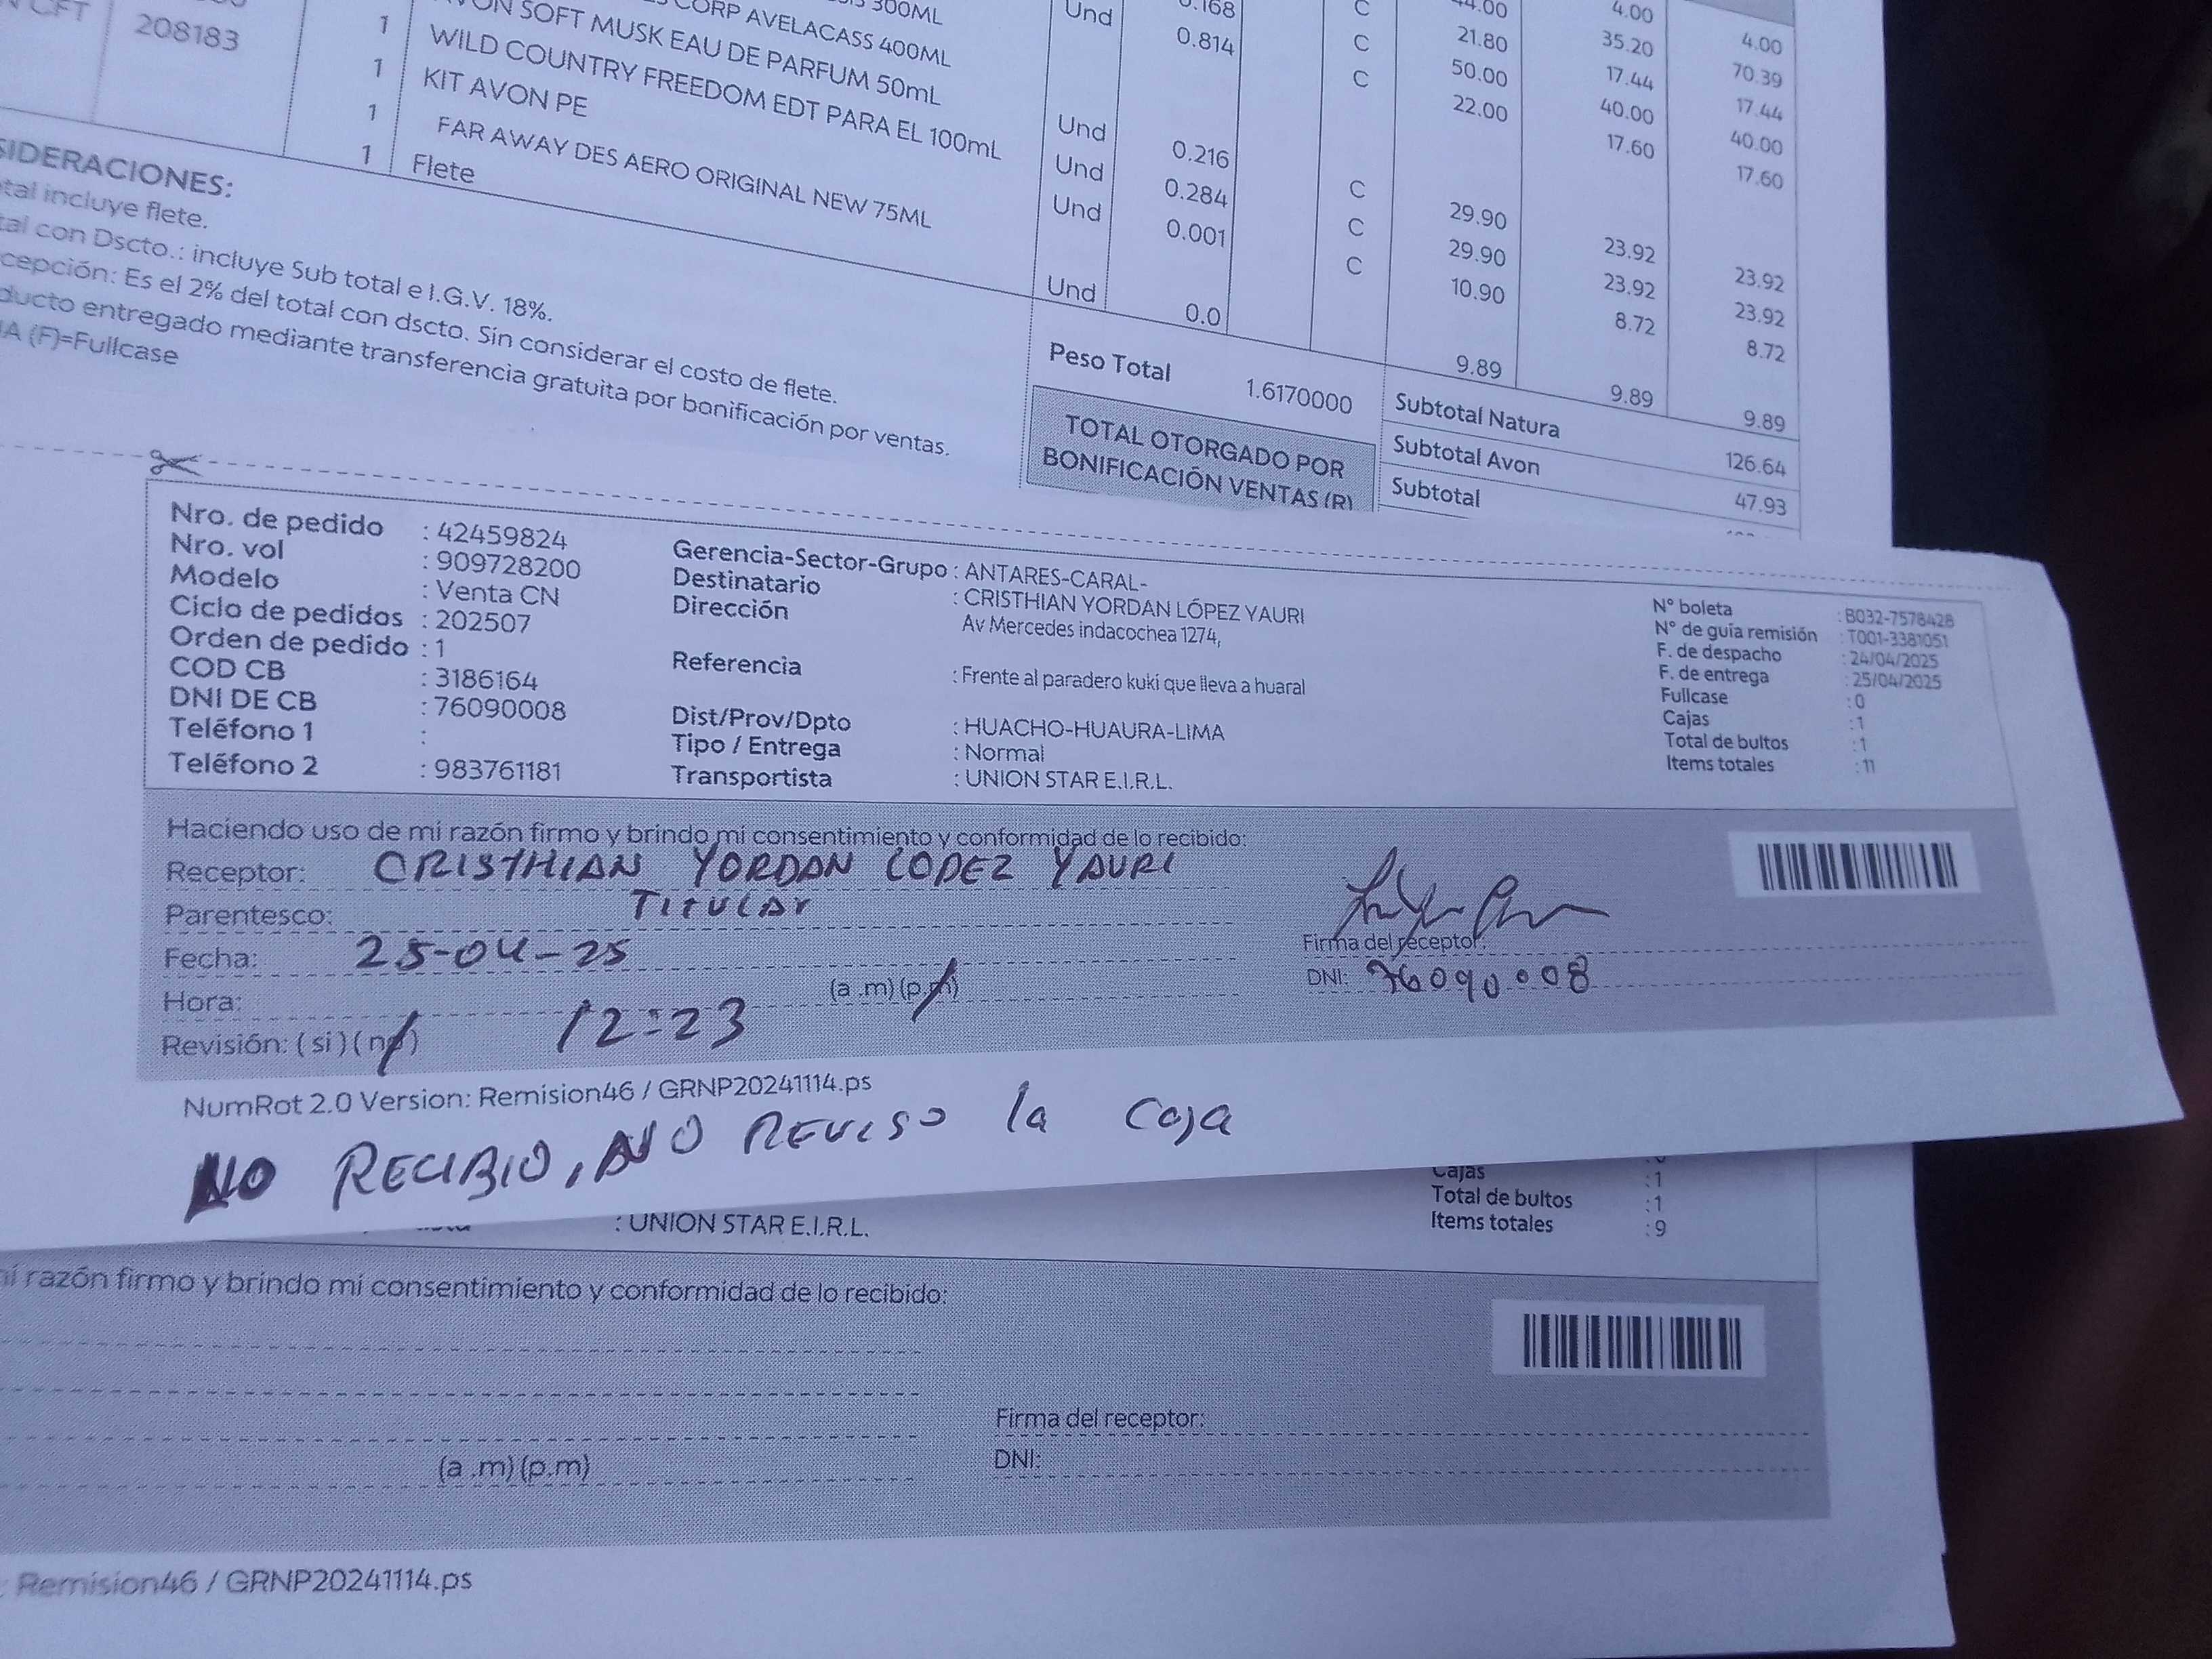 300ML
CORP AVELACASS 400ML
SOFT MUSK EAU DE PARFUM 50mL
WILD COUNTRY FREEDOM EDT PARA EL 100mL
KIT AVON PE
FAR AWAY DES AERO ORIGINAL NEW 75ML
Flete
CFT 208183
1
1
1
1
1
Und 0.168 C 4.00 4.00
0.814 C 21.80 35.20 70.39
C 50.00 17.44 17.44
22.00 40.00 40.00
17.60 17.60
Und 0.216 C 29.90 23.92 23.92
Und 0.284 C 29.90 23.92 23.92
Und 0.001 C 10.90 8.72 8.72
Und 0.0 9.89 9.89 9.89
Peso Total 1.6170000
TOTAL OTORGADO POR
BONIFICACIÓN VENTAS (R)
Subtotal Natura 126.64
Subtotal Avon 47.93
Subtotal
SIDERACIONES:
tal incluye flete.
tal con Dscto.: incluye Sub total e I.G.V. 18%.
cepción: Es el 2% del total con dscto. Sin considerar el costo de flete.
ducto entregado mediante transferencia gratuita por bonificación por ventas.
A (F)=Fullcase
Nro. de pedido : 42459824
Nro. vol : 909728200
Modelo : Venta CN
Ciclo de pedidos : 202507
Orden de pedido : 1
COD CB : 3186164
DNI DE CB : 76090008
Teléfono 1 :
Teléfono 2 : 983761181
Gerencia-Sector-Grupo : ANTARES-CARAL-
Destinatario : CRISTHIAN YORDAN LÓPEZ YAURI
Dirección Av Mercedes indacochea 1274,
Referencia : Frente al paradero kuki que lleva a huaral
Dist/Prov/Dpto : HUACHO-HUAURA-LIMA
Tipo / Entrega : Normal
Transportista : UNION STAR E.I.R.L.
N° boleta : B032-7578428
N° de guía remisión : T001-3381051
F. de despacho : 24/04/2025
F. de entrega : 25/04/2025
Fullcase : 0
Cajas : 1
Total de bultos : 1
Items totales : 11
Haciendo uso de mi razón firmo y brindo mi consentimiento y conformidad de lo recibido:
Receptor: CRISTHIAN YORDAN LOPEZ YAURI
Parentesco: TITULAR
Fecha: 25-04-25
Hora: 12:23 (a .m) (p.m)
Revisión: ( si ) ( no )
Firma del receptor:
DNI: 76090008
NumRot 2.0 Version: Remision46 / GRNP20241114.ps
NO RECIBIO, NO REVISO la caja
Cajas : 1
Total de bultos : 1
Items totales : 9
: UNION STAR E.I.R.L.
mi razón firmo y brindo mi consentimiento y conformidad de lo recibido:
Firma del receptor:
(a .m) (p.m)
DNI:
: Remision46 / GRNP20241114.ps